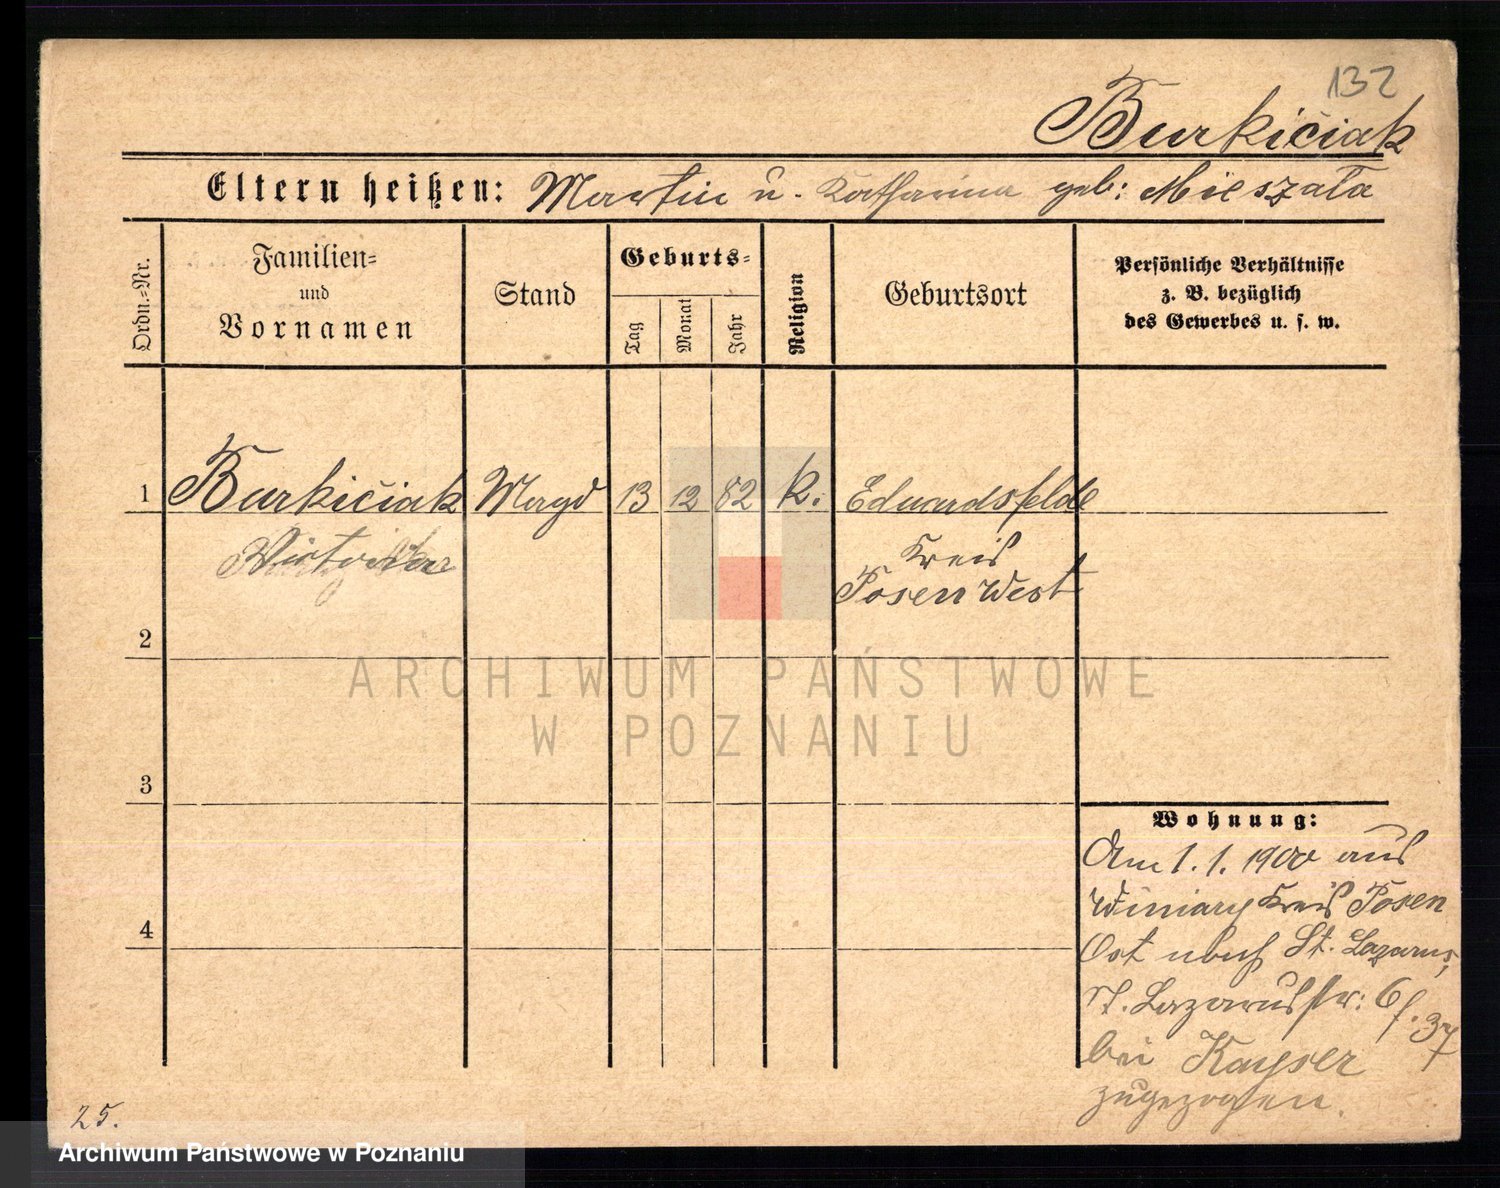 132
Burkiciak
Eltern heißen: Martin u. Katharina geb: Mieszała
Ordn.=Nr.
Familien=
und
Vornamen
Stand
Geburts=
Tag
Monat
Jahr
Religion
Geburtsort
Persönliche Verhältnisse
z. B. bezüglich
des Gewerbes u. s. w.
1 Burkiciak Magd 13 12 82 k. Eduardsfelde
Kreis
Posen West
2
3
4
Wohnung:
Am 1. 1. 1900 aus
Winiary Kreis Posen
Ost nach St. Lazarus,
St. Lazarusstr: 6
bei Kayser
zugezogen.
25.
ARCHIWUM PAŃSTWOWE
W POZNANIU
Archiwum Państwowe w Poznaniu